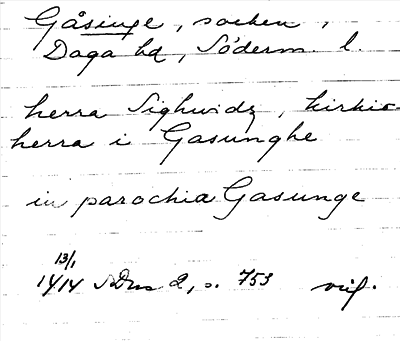 Gåsinge, socken,
Daga hd, Söderm. l.
herra Sighwidz, kirkio-
herra i Gasunghe
in parochia Gasunge
13/1
1414 SDns 2, s. 753